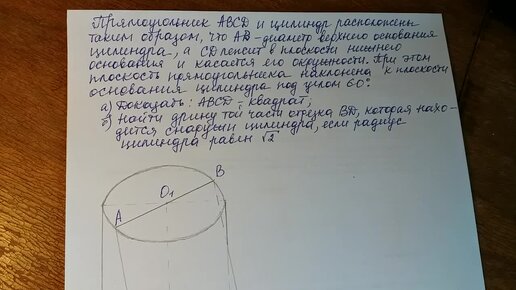 Прямоугольник ABCD и цилиндр расположены
таким образом, что AB-диаметр верхнего основания
цилиндра, а CD лежит в плоскости нижнего
основания и касается его окружности. При этом
плоскость прямоугольника наклонена к плоскости
основания цилиндра под углом 60°.
а) Доказать: ABCD - квадрат;
б) Найти длину той части отрезка BD, которая нахо-
дится снаружи цилиндра, если радиус
цилиндра равен √2
B
O₁
A